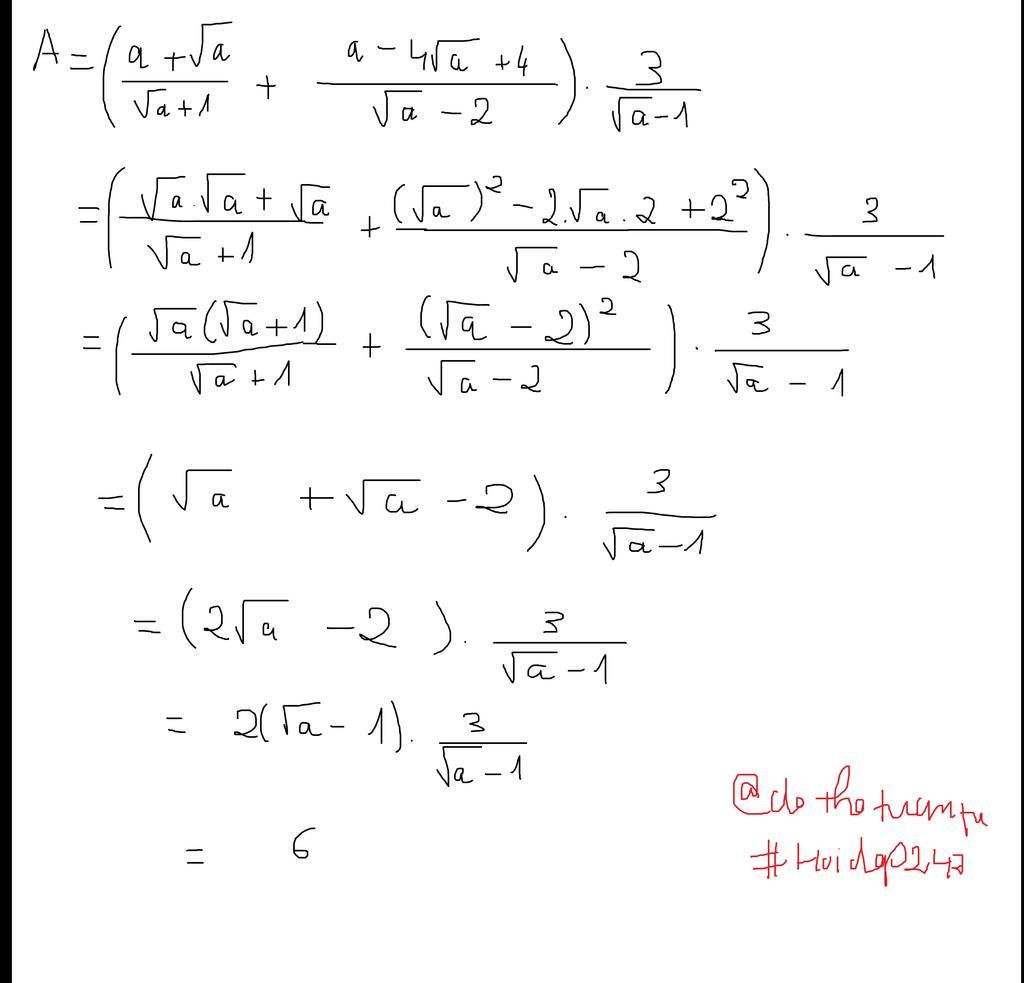 A = ( (a + √a)/(√a + 1) + (a - 4√a + 4)/(√a - 2) ) . 3/(√a - 1)
= ( (√a.√a + √a)/(√a + 1) + ((√a)² - 2.√a.2 + 2²)/(√a - 2) ) . 3/(√a - 1)
= ( (√a(√a + 1))/(√a + 1) + (√a - 2)²/(√a - 2) ) . 3/(√a - 1)
= ( √a + √a - 2 ) . 3/(√a - 1)
= (2√a - 2) . 3/(√a - 1)
= 2(√a - 1) . 3/(√a - 1)
= 6
#Hoidap247